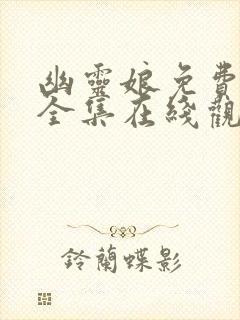 幽靈娘免費
全集在綫觀
鈴蘭蝶影